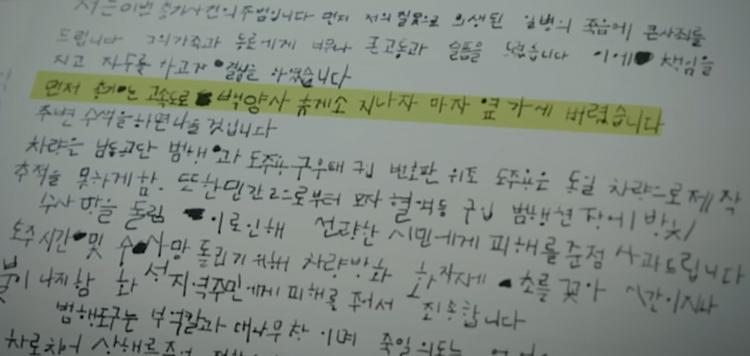 저는 이번 총기사건의 주범입니다 먼저 저의 잘못으로 희생된 일병의 죽음에 큰사죄를
드립니다 그의가족과 동료에게 너무나 큰고통과 슬픔을 이에 책임을
지고 자수를 하고자 결심을 하였습니다
먼저 총기는 고속도로 백양사 휴게소 지나자 마자 옆 가에 버렸습니다
주변 수색을하면 나올 것입니다
차량은 남동공단 범행 과 도주용 구입 번호판 위조 도주용은 동일 차량으로 제작
추적을 못하게 함. 또한 모자 구입 범행현장에
수사 망을 돌림 이로인해 선량한 시민에게 피해를 준점 사과드립니다
도주시간 및 수사망 돌리기 위해 차량방화 초를 꽂아 시간이지나
불이 나게함 화성 지역주민에게 피해를 주어서 죄송합니다
범행도구는 부엌칼과 대나무창 이며 죽일 의도는